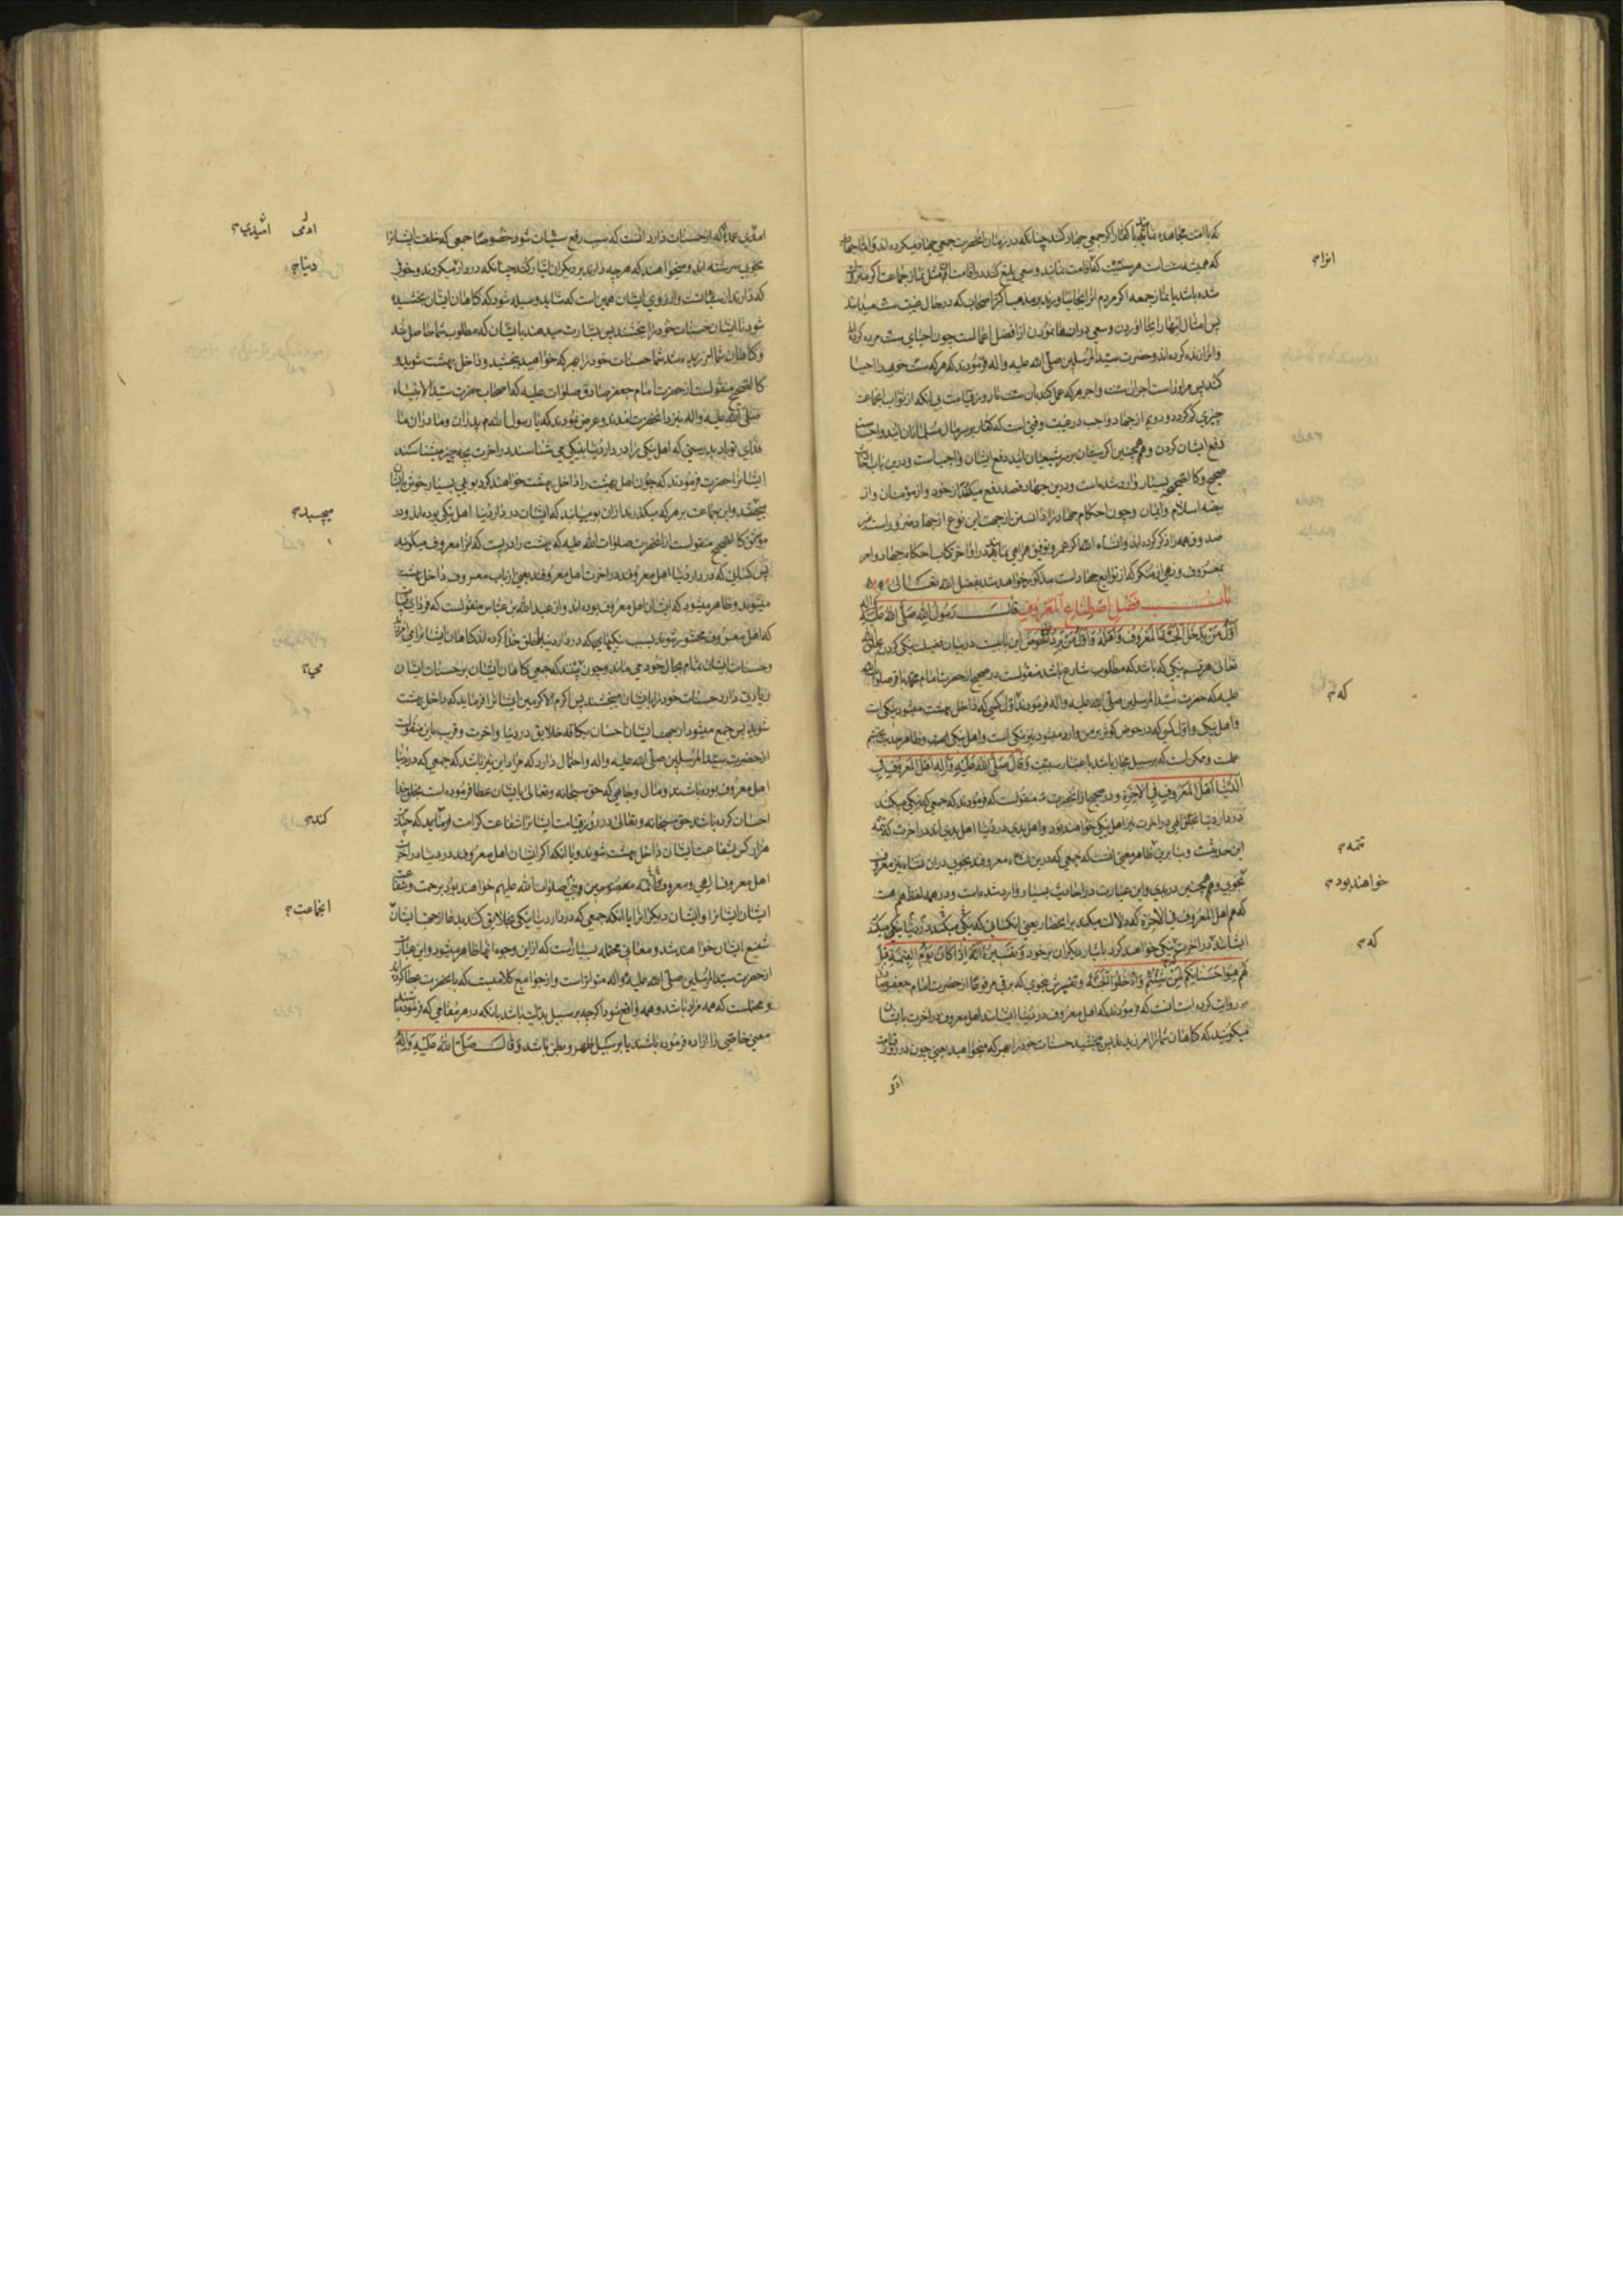 که با امت مجاهده نمایند با کفار اگر جمعی جهاد کنند چنانکه در زمان آنحضرت جمعی جهاد میکرده اند و اما جهاد
که همیشه سنت است هر سنتیست که اقامت نمایند و سعی بلیغ کنند در اقامت آن مثل نماز جماعت اگر متروک
شده باشد یا نماز جمعه اگر مردم آنرا بجا نیاورند
پس امثال اینها را بجا آوردن و سعی در آن بنمودن از افضل اعمالست چون احیای سنت مرده کرده
و آنرا زنده کرده اند و حضرت سید المرسلین صلی الله علیه و آله فرمودند که هر که سنت خوبی را احیا
کند پس مر اوراست اجر آن سنت و اجر هر که عمل کند بآن سنت تا روز قیامت بی آنکه از ثواب آنجماعت
چیزی کم گردد و دویم از جهاد واجب در غیبت وقتی است که کفار بر سر مال مسلمانان آیند واجبست
دفع ایشان کردن و همچنین اگر سنیان بر سر شیعیان آیند دفع ایشان واجبست و درین باب احادیث
صحیح و کالصحیح بسیار وارد شده است و درین جهاد قصد دفع میکند از خود و از مؤمنان و از
بیضه اسلام و ایمان و چون احکام جهاد را دانستن از جهت این نوع از جهاد ضرور است
صدوق همه را ذکر کرده اند و انشاء الله اگر عمر و توفیق همراهی نماید در اواخر کتاب احکام جهاد و امر
بمعروف و نهی از منکر که از توابع جهاد است مذکور خواهد شد بفضل الله تعالی
باب فضل اصطناع المعروف قال رسول الله صلی الله علیه و آله
اول من یدخل الجنة المعروف و اهله و اول من یرد علی الحوض این بابیست در بیان فضیلت نیکی کردن بخلق الله
تعالی هر قسم نیکی که باشد که مطلوب شارع باشد منقولست در صحیح از حضرت امام محمد باقر صلوات الله
علیه که حضرت سید المرسلین صلی الله علیه و آله فرمودند که اول کسی که داخل بهشت میشود نیکی است
و اهل نیکی و اول کسی که در حوض کوثر بر من وارد میشود نیز نیکی است و اهل نیکی است و ظاهر حدیث تجسم
عملست و ممکن است که بر سبیل مجاز باشد باعتبار سببیت و قال صلی الله علیه و آله اهل المعروف فی
الدنیا اهل المعروف فی الآخرة و در صحیح از آنحضرت منقولست که فرمودند که جمعی که نیکی میکنند
در دار دنیا بخلق الهی در آخرت نیز اهل نیکی خواهند بود و اهل بدی در دنیا اهل بدی اند در آخرت که تتمه
این حدیثست و بنا برین ظاهر معنی آنست که جمعی که درین نشاه معروفند بخوبی در آن نشاه نیز معروف
بخوبی و همچنین در بدی و این عبارت در احادیث بسیار وارد شده است و در همه لفظ هم هست
که هم اهل المعروف فی الآخرة که دلالت میکند بر انحصار یعنی آنکسانی که نیکی میکنند در دنیا نیکی میکنند
ایشانند در آخرت نیکی خواهند کرد بایثار دیگران بر خود و تفسیره انه اذا کان یوم القیمة قیل
لهم هبوا حسناتکم لمن شئتم و ادخلوا الجنة و تفسیرش بنحوی که برقی مرفوعا از حضرت امام جعفر صادق
روایت کرده است آنست که فرمودند که اهل معروف در دنیا ایشانند اهل معروف در آخرت بایشان
میگویند که گناهان شما را آمرزیدند پس ببخشید حسنات خود را بهر که میخواهید یعنی چون در روز قیامت
انرا
که
تتمه
خواهند بود
که
امیدی عمده که از حسنات دارد آنست که سبب رفع سیئات شود خصوصا جمعی که خلقت ایشانرا
بخوبی سرشته اند و میخواهند که هر چه دارند بر دیگران ایثار کنند چنانکه در دار میکردند و خوفی
که دارند از سیئاتست و آرزوی ایشان همین است که شاید وسیله شود که گناهان ایشان بخشیده
شود تا ایشان حسنات خود را بخشند پس بشارت میدهند بایشان که مطلوب شما حاصل شد
و گناهان شما آمرزیده شد شما حسنات خود را بهر که خواهید ببخشید و داخل بهشت شوید و
کالصحیح منقولست از حضرت امام جعفر صادق صلوات علیه که اصحاب حضرت سید الانبیاء
صلی الله علیه و آله بنزد آنحضرت آمدند و عرض نمودند که یا رسول الله پدران و مادران ما
فدای تو باد بدرستی که اهل نیکی را در دار دنیا بنیکی می شناسند در آخرت بچه چیز میشناسند
ایشانرا حضرت فرمودند که چون اهل بهشت را داخل بهشت خواهند کرد بوی بسیار خوش بایشان
میچسبد و این جماعت بر هر که میگذرند از آن بو مییابند که ایشان در دار دنیا اهل نیکی بوده اند و در
موثق کالصحیح منقولست از آنحضرت صلوات الله علیه که بهشت را دریست که آنرا معروف میگویند
پس کسانی که در دار دنیا اهل معروفند در آخرت اهل معروفند یعنی از باب معروف داخل بهشت
میشوند و ظاهر میشود که ایشان اهل معروف بوده اند و از عبد الله بن عباس منقولست که فردای قیامت
که اهل معروف محشور شوند بسبب نیکیهائی که در دار دنیا بخلق خدا کرده اند گناهان ایشانرا می آمرزند
و حسنات ایشان تمام بحال خود می ماند و چون بینند که جمعی گناهان ایشان بر حسنات ایشان
زیادتی دارد حسنات خود را بایشان میبخشند پس اکرم الاکرمین ایشانرا فرماید که داخل بهشت
شوید پس جمع میشود از جهت ایشان احسان بکافه خلایق در دنیا و آخرت و قریب باین منقولست
از حضرت سید المرسلین صلی الله علیه و آله و احتمال دارد که مراد این نیز باشد که جمعی که در دنیا
اهل معروف بوده باشند و مال و جاهی که حق سبحانه و تعالی بایشان عطا فرموده است بخلق خدا
احسان کرده باشند حق سبحانه و تعالی در روز قیامت ایشانرا شفاعت کرامت فرماید که چند
هزار کس بشفاعت ایشان داخل بهشت شوند و یا آنکه اگر ایشان اهل معروفند در دنیا در آخرت
اهل معروف الهی و معروف ائمه معصومین و نبی صلوات الله علیهم خواهند بود برحمت و شفاعت
ایشان ایشانرا و ایشان دیگرانرا یا آنکه جمعی که در دار دنیا نیکی بخلایق کنند
شفیع ایشان خواهند شد و معانی محتمله بسیار است که از این وجوه اینها ظاهر میشود و این عبارت
از حضرت سید المرسلین صلی الله علیه و آله متواتر است و از جوامع کلامیست که بآنحضرت عطا کرده اند
و محتملست که همه مراد باشد و همه واقع شود اگر چه بر سبیل بدلیت باشد بآنکه در هر مقامی که فرموده باشند
معنی خاصی را اراده فرموده باشند یا بر سبیل ظهر و بطن باشد و قال صلی الله علیه و آله
امیدی
دنیا
میچسبد
کنند
آنجماعت